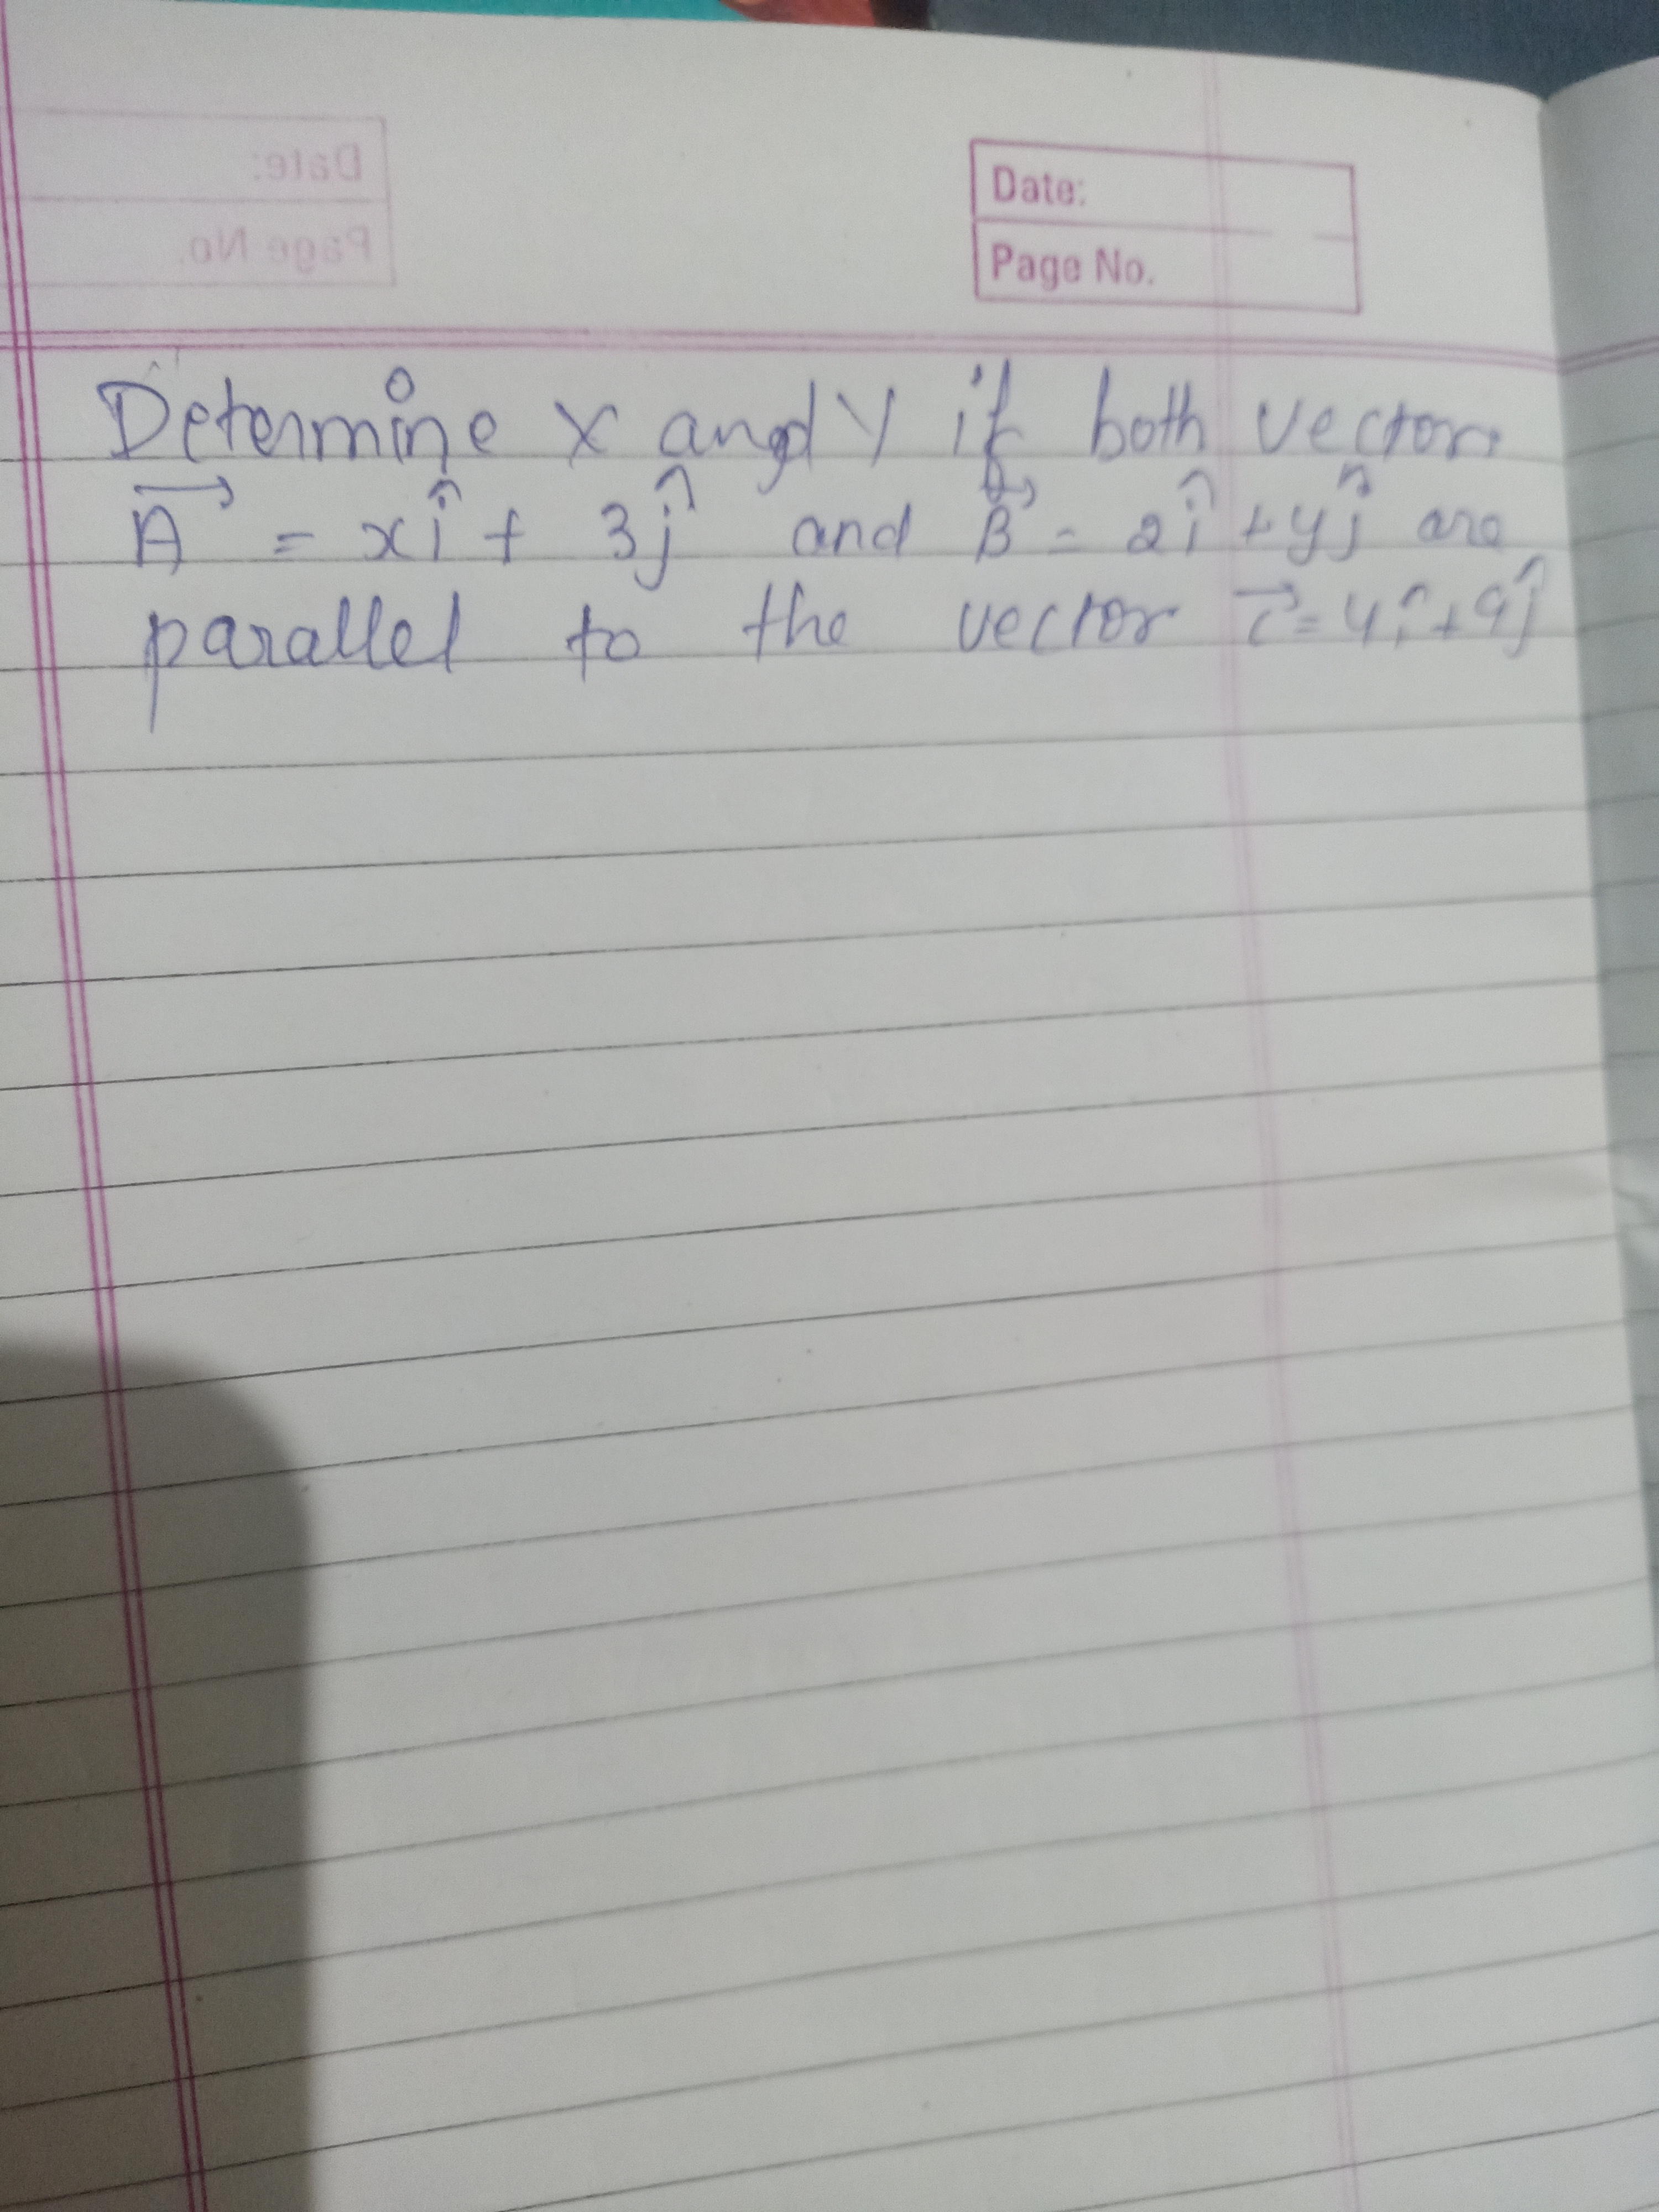 Date:
Page No.
Determine x and y if both vector
A⃗ = xî + 3ĵ and B⃗ = 2î + yĵ are
parallel to the vector c⃗ = 4î + 9ĵ